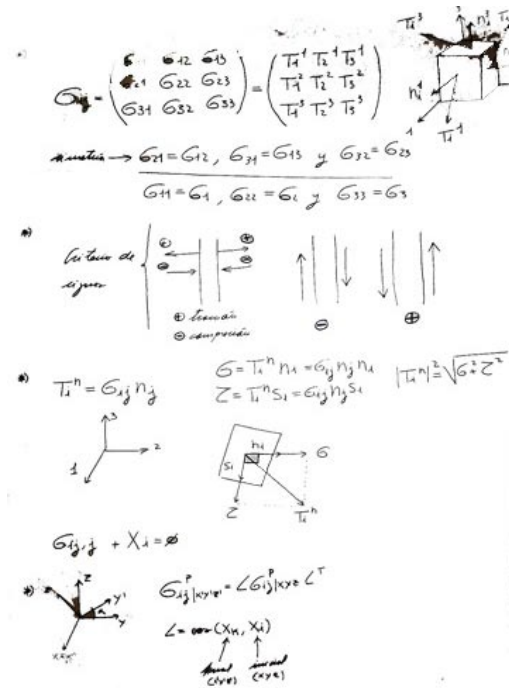 σij = ( σ σ12 σ13 ) = ( T1^1 T2^1 T3^1 )
σ21 σ22 σ23 T1^2 T2^2 T3^2
σ31 σ32 σ33 T1^3 T2^3 T3^3
T1^3 3 n1^3
n1^1
1 T1^1
simetría → σ21 = σ12 , σ31 = σ13 y σ32 = σ23
σ11 = σ1 , σ22 = σ2 y σ33 = σ3
*)
Criterio de
signos
⊕ ⊕
⊖ ⊖
⊕ tracción
⊖ compresión
⊖ ⊕
*) Ti^n = σij nj
σ = Ti^n ni = σij nj ni
τ = Ti^n si = σij nj si
|Ti^n|² = √σ²+τ²
3
2
1
ni
si
σ
τ
Ti^n
σij,j + Xi = ∅
*)
z
y'
α
y
σij^P|x'y'z' = L σij^P|xyz L^T
L = cos (Xk, Xi)
final inicial
(x'y'z') (xyz)